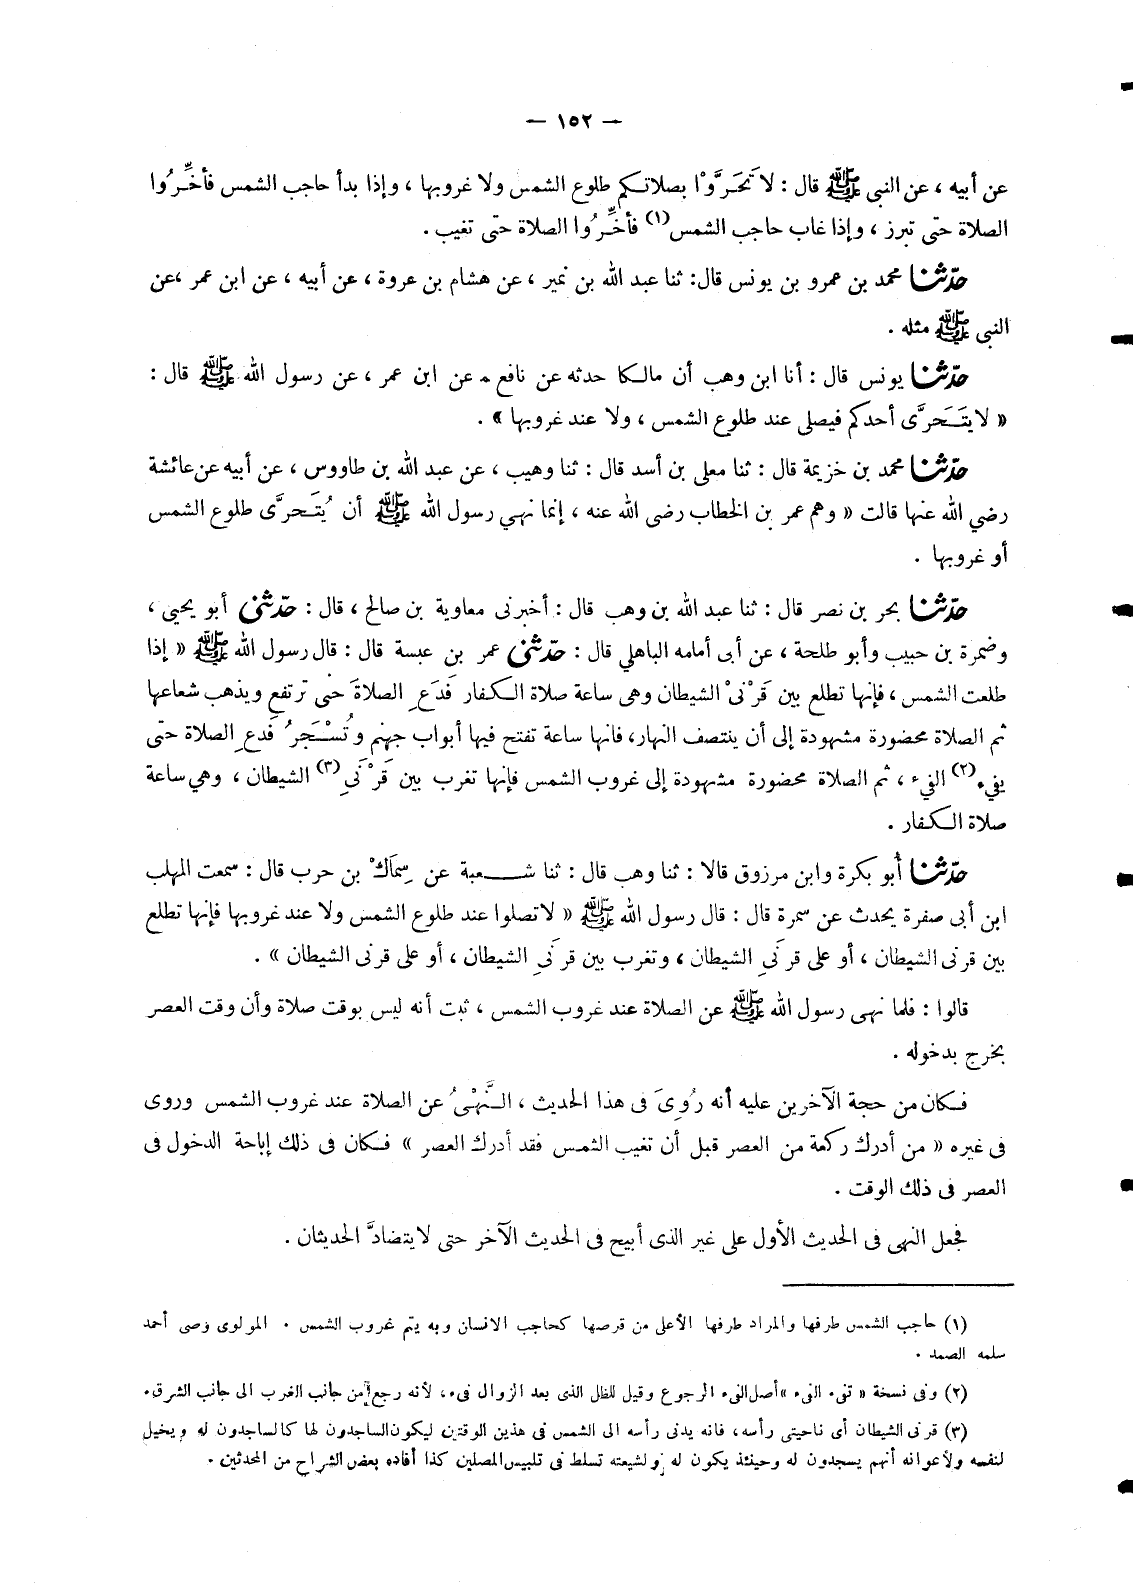 — ١٥٢ —
عن أبيه ، عن النبي ﷺ قال : لا تَحَرَّوْا بصلاتكم طلوع الشمس ولا غروبها ، وإذا بدأ حاجب الشمس فأخِّرُوا
الصلاة حتى تبرز ، وإذا غاب حاجب الشمس(١) فأخِّرُوا الصلاة حتى تغيب .
حدّثنا محمد بن عمرو بن يونس قال: ثنا عبد الله بن نمير ، عن هشام بن عروة ، عن أبيه ، عن ابن عمر ،عن
النبي ﷺ مثله .
حدّثنا يونس قال : أنا ابن وهب أن مالكا حدثه عن نافع ، عن ابن عمر ، عن رسول الله ﷺ قال :
« لا يتَحرَّى أحدكم فيصلى عند طلوع الشمس ، ولا عند غروبها » .
حدّثنا محمد بن خزيمة قال : ثنا معلى بن أسد قال : ثنا وهيب ، عن عبد الله بن طاووس ، عن أبيه عن عائشة
رضي الله عنها قالت « وهم عمر بن الخطاب رضى الله عنه ، إنما نهي رسول الله ﷺ أن يُتَحرَّى طلوع الشمس
أو غروبها .
حدّثنا بحر بن نصر قال : ثنا عبد الله بن وهب قال : أخبرنى معاوية بن صالح ، قال : حدّثنى أبو يحيى ،
وضمرة بن حبيب وأبو طلحة ، عن أبى أمامه الباهلي قال : حدّثنى عمر بن عبسة قال : قال رسول الله ﷺ « إذا
طلعت الشمس ، فإنها تطلع بين قَرْنىْ الشيطان وهى ساعة صلاة الكفار فَدَعِ الصلاةَ حتى ترتفع ويذهب شعاعها
ثم الصلاة محضورة مشهودة إلى أن ينتصف النهار، فانها ساعة تفتح فيها أبواب جهنم وتُسْجَرُ فَدعِ الصلاة حتى
يفيء(٢) الفيء ، ثم الصلاة محضورة مشهودة إلى غروب الشمس فإنها تغرب بين قَرْنَىِ(٣) الشيطان ، وهي ساعة
صلاة الكفار .
حدّثنا أبو بكرة وابن مرزوق قالا : ثنا وهب قال : ثنا شعبة عن سِمَاكْ بن حرب قال : سمعت المهلب
ابن أبى صفرة يحدث عن سمرة قال : قال رسول الله ﷺ « لا تصلوا عند طلوع الشمس ولا عند غروبها فإنها تطلع
بين قرنى الشيطان ، أو على قرنَىِ الشيطان ، وتغرب بين قرنَىِ الشيطان ، أو على قرنى الشيطان » .
قالوا : فلما نهى رسول الله ﷺ عن الصلاة عند غروب الشمس ، ثبت أنه ليس بوقت صلاة وأن وقت العصر
يخرج بدخوله .
فكان من حجة الآخرين عليه أنه رُوِىَ فى هذا الحديث ، النَّهْىُ عن الصلاة عند غروب الشمس وروى
فى غيره « من أدرك ركعة من العصر قبل أن تغيب الشمس فقد أدرك العصر » فكان فى ذلك إباحة الدخول فى
العصر فى ذلك الوقت .
فجعل النهى فى الحديث الأول على غير الذى أبيح فى الحديث الآخر حتى لا يتضادَّ الحديثان .
(١) حاجب الشمس طرفها والمراد طرفها الأعلى من قرصها كحاجب الانسان وبه يتم غروب الشمس . المولوى وصى أحمد
سلمه الصمد .
(٢) وفى نسخة « تفىء الفىء » أصل الفىء الرجوع وقيل للظل الذى بعد الزوال فىء، لأنه رجع من جانب الغرب الى جانب الشرق.
(٣) قرنى الشيطان أى ناحيتى رأسه، فانه يدنى رأسه الى الشمس فى هذين الوقتين ليكون الساجدون لها كالساجدون له ويخيل
لنفسه ولأعوانه أنهم يسجدون له وحينئذ يكون له ولشيعته تسلط فى تلبيس المصلين كذا أفاده بعض الشراح من المحدثين .